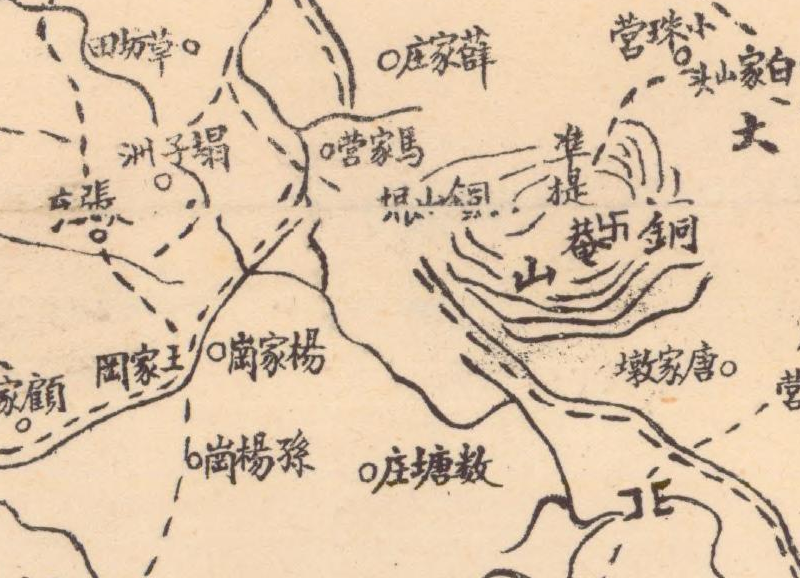 草坊田
薛家庄
小珠营
白家山头
大
塌子洲
馬家营
銅山根
准提菴
卍
銅山
張
王家岡
楊家崗
唐家墩
顧家
营
孫楊崗
数塘庄
北